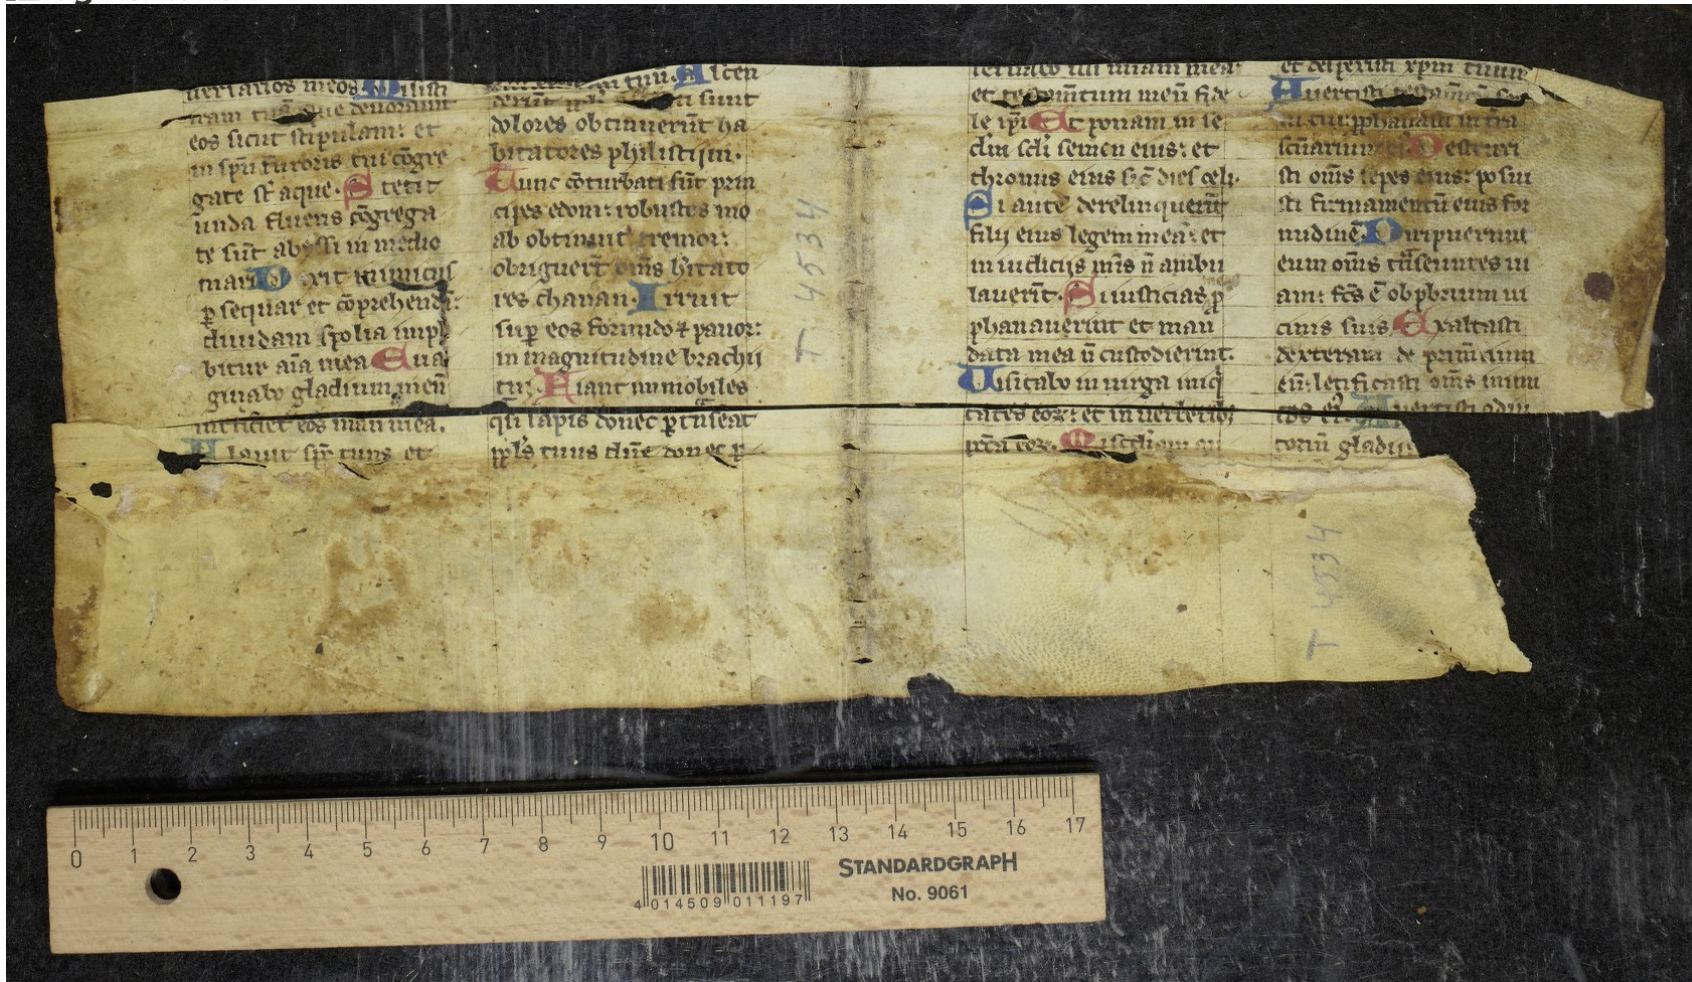 uersarios meos Misisti
iram tuā que deuorauit
eos sicut stipulam: et
in spū furoris tui cōgre
gate st̄ aque. Stetit
unda fluens cōgrega
te sūt abyssi in medio
mari Dixit inimicus
ꝑsequar et cōprehendā:
diuidam spolia impl
bitur aīa mea Eua
ginabo gladium meū
interficiet eos man mea.
Flauit spc̄ tuus et
tuū. Ascen
derūt
ti sunt
dolores obtinuerūt ha
bitatores philistijm.
Tunc cōturbati sūt prin
cipes edom: robustos mo
ab obtinuit tremor:
obriguert̄ om̄s h̄itato
res chanan. Irruit
suꝑ eos formido ⁊ pauor:
in magnitudine brachij
tui Fiant inmobiles
qͥ lapis donec ꝑtnseat
ppl̄s tuus dn̄e donec ꝑ
T 4534
seruabo illi miam meā
et testamētum meū fide
le ip̄i Et ponam in se
clm̄ scl̄i semen eius: et
thronus eius sic̄ dies celi.
Si autē derelinquerīt
filij eius legem meā: et
in iudicijs meis n̄ ambu
lauerīt. Si iusticias ꝓ
phanauerint et man
data mea n̄ custodierint.
Uisitabo in uirga iniqͥ
tates eoꝝ: et in uerberibꝫ
pctā eoꝝ. Miscdiam au
et despexisti xpm̄ tuum
Auertisti testamētū
tui: ꝓphanasti in tra
sc̄uarium Destruxi
sti om̄s sepes eius: posui
sti firmamentū eius for
midinē Diripuerunt
eum om̄s trāseuntes ui
am: fc̄s ē obpbrium ui
cinis suis Exaltasti
dexteram deprimētium
eū: letificasti om̄s inimi
cos ei Auertisti adiu
toriū gladij
T 4534
0 1 2 3 4 5 6 7 8 9 10 11 12 13 14 15 16 17
4 014509 011197
STANDARDGRAPH
No. 9061